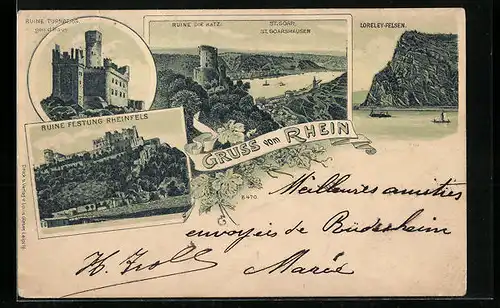 RUINE THURNBERG
RUINE DIE KATZ.
ST. GOAR.
ST. GOARSHAUSEN
LORELEY-FELSEN.
RUINE FESTUNG RHEINFELS
GRUSS vom RHEIN
Meilleures amitiés
envoyées de Rüdesheim
Marié